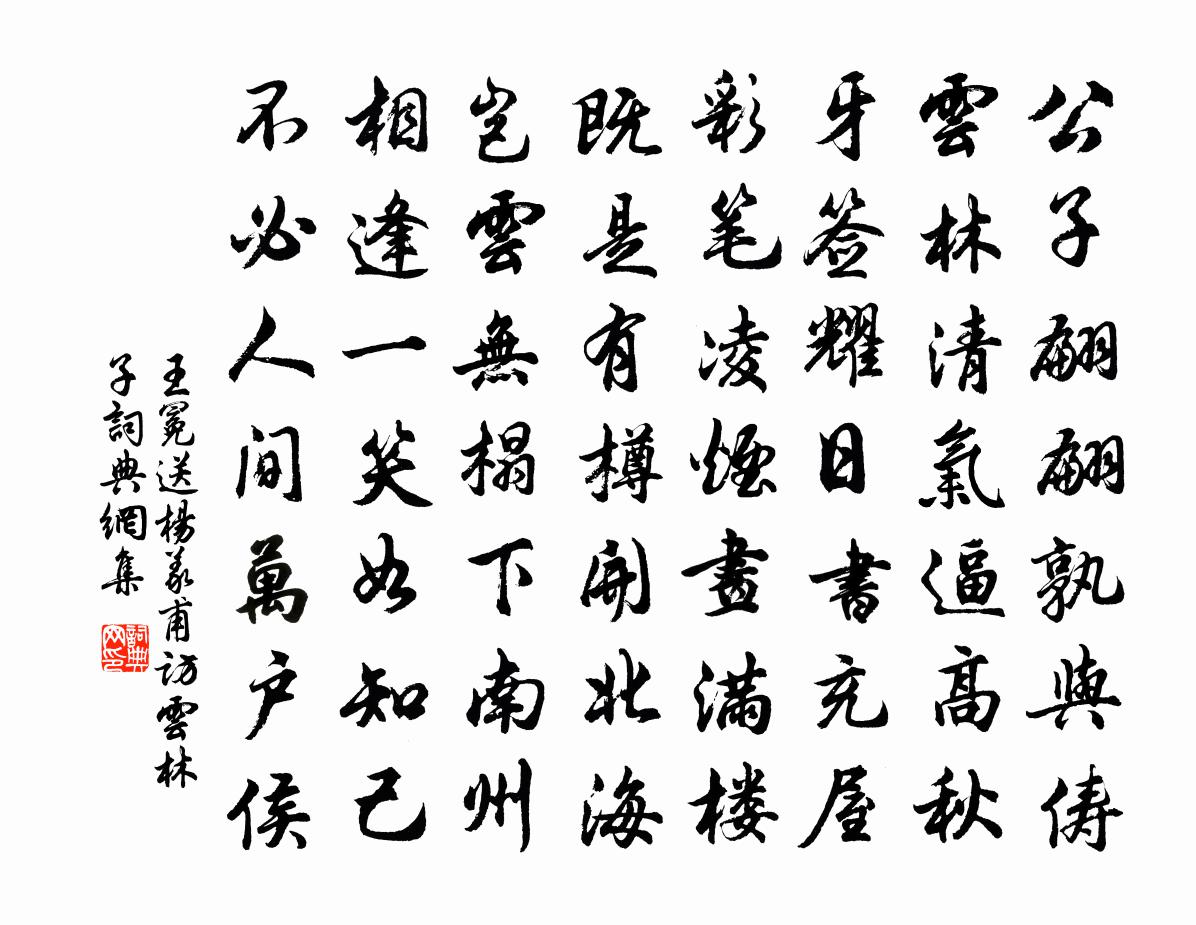 公子翩翩孰與儔
雲林清氣逼高秋
牙签耀日書充屋
彩笔凌煙畫满楼
既是有樽開北海
岂雲無榻下南州
相逢一笑如知己
不必人间萬户侯
王冕送楊义甫訪雲林
子詞典網集
詞典网印